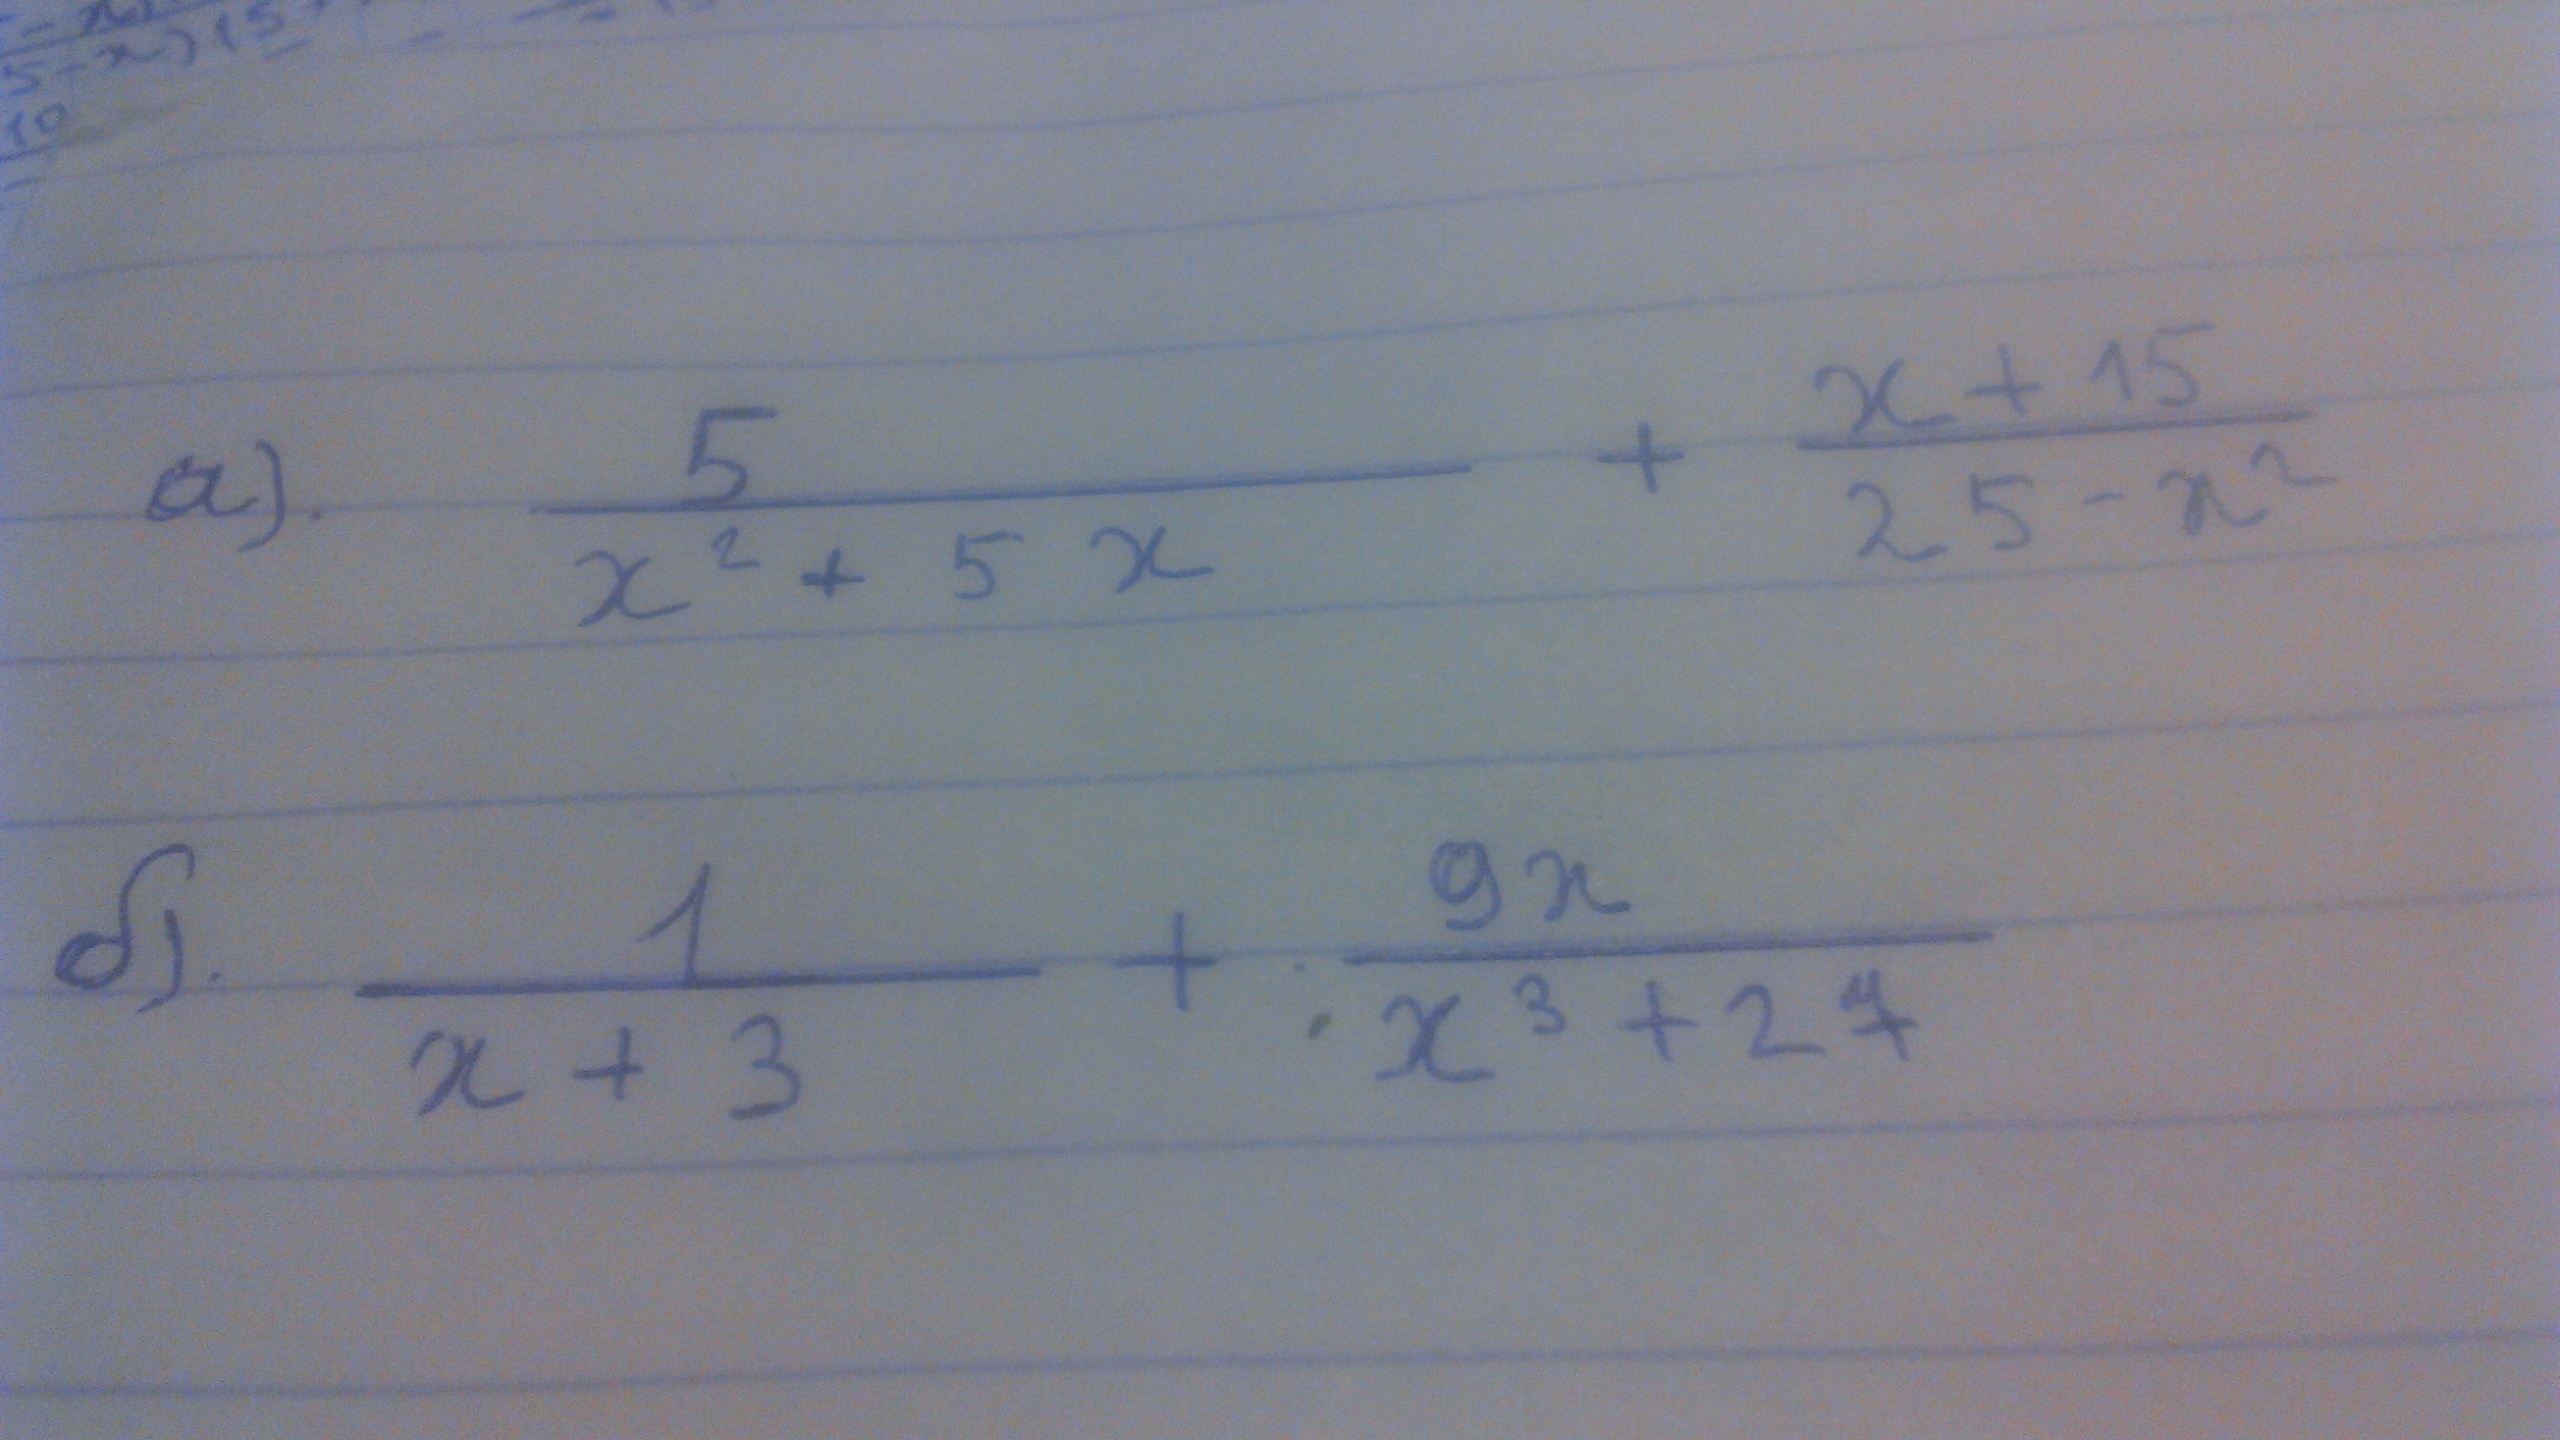 а). 5/(x² + 5x) + (x + 15)/(25 - x²)
б). 1/(x + 3) + 9x/(x³ + 27)